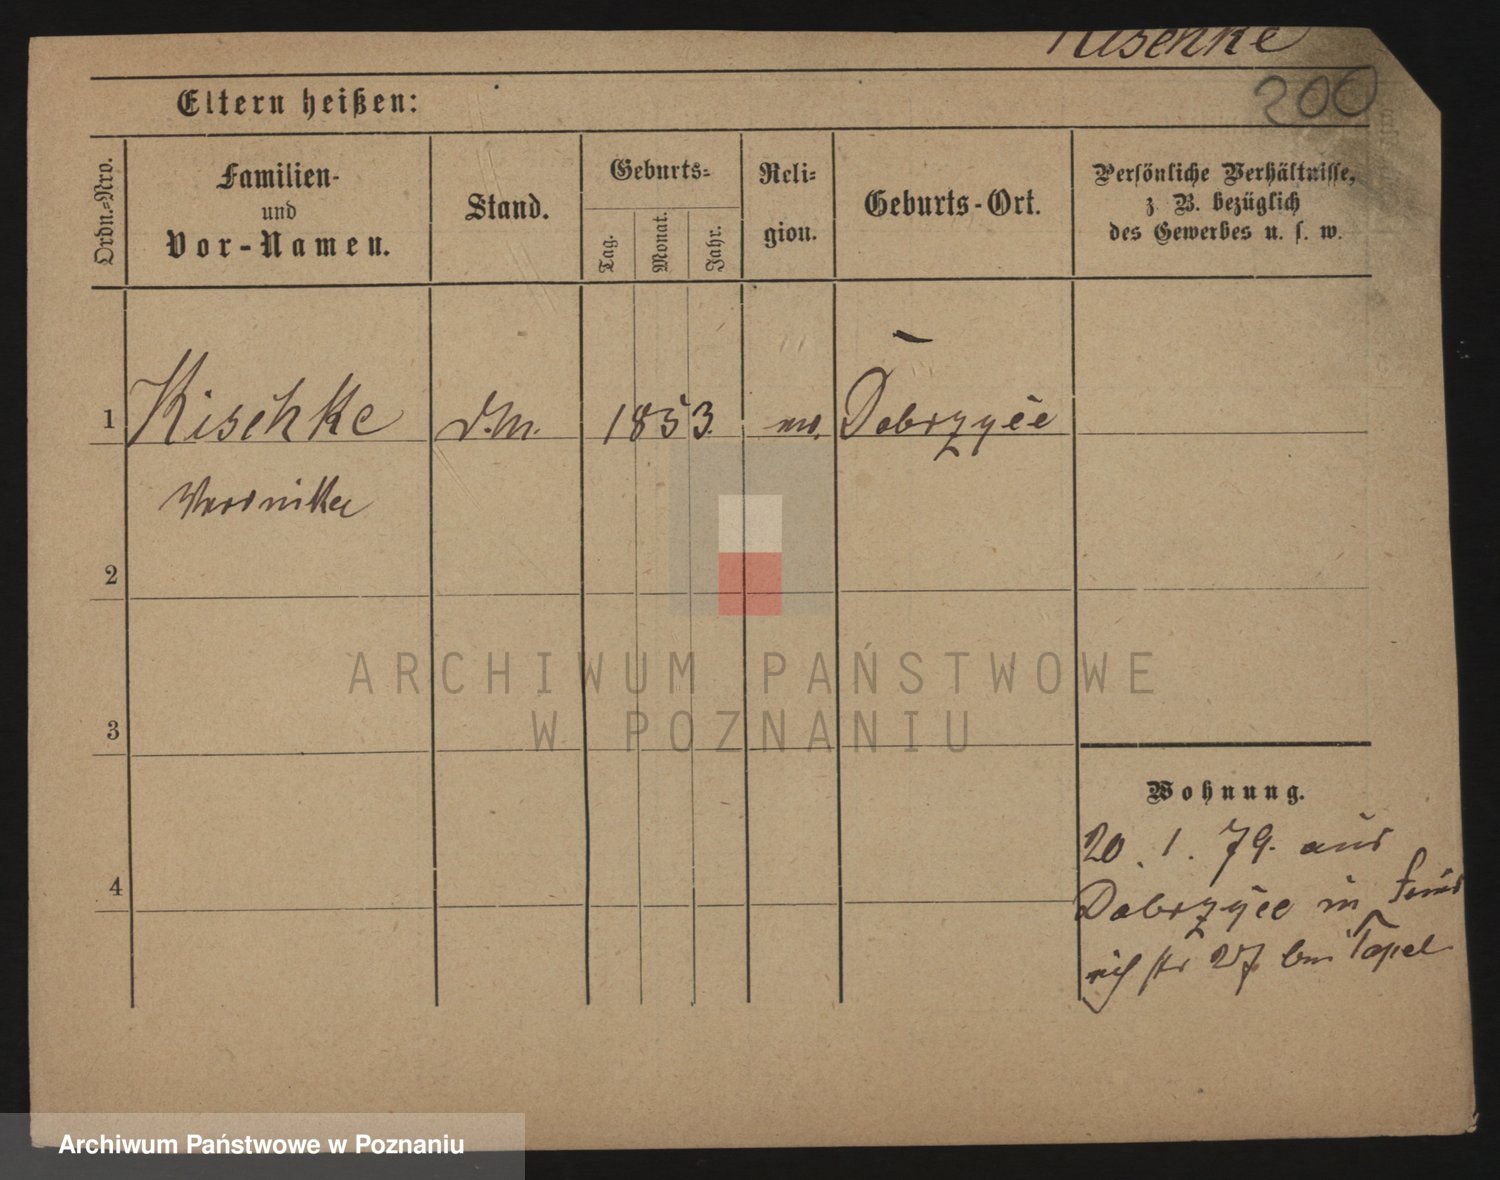 Kischke
200
Eltern heißen:
Ordn.-Nro.
Familien-
und
Vor-Namen.
Stand.
Geburts-
Tag.
Monat.
Jahr.
Reli-
gion.
Geburts-Ort.
Persönliche Verhältnisse,
z. B. bezüglich
des Gewerbes u. s. w.
1
Kischke
d.M.
1853.
Dobrzyce
Veronika
2
3
4
Wohnung.
20. 1. 79. aus
Dobrzyce in
str 27 bei
ARCHIWUM PAŃSTWOWE
W POZNANIU
Archiwum Państwowe w Poznaniu